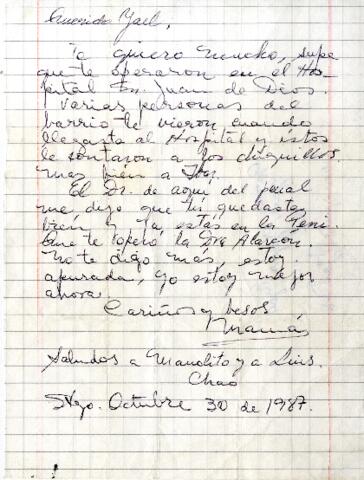 Querido Yael,
Te quiero mucho, supe
que te operaron en el Hos-
pital Sn. Juan de Dios.
Varias personas del
barrio te vieron cuando
llegaste al Hospital y éstos
le contaron a los chiquillos
más bien a
El Dr. de aquí del penal
me dijo que tú quedaste
bien y ya estás en la Peni.
Que te operó la Dra Alarcón.
No te digo más, estoy
apurada, yo estoy mejor
ahora.
Cariños y besos
Mamá
Saludos a Manolito y a Luis.
Chao
Stgo. Octubre 30 de 1987.